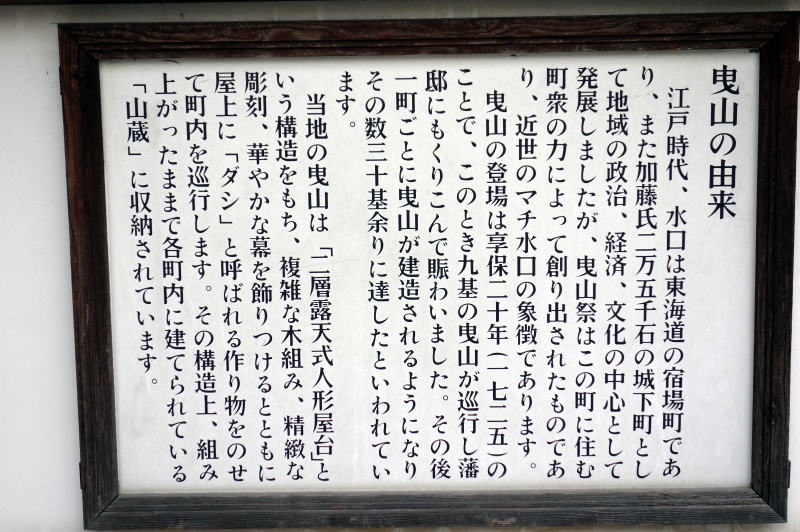 曳山の由来
江戸時代、水口は東海道の宿場町であ
り、また加藤氏二万五千石の城下町とし
て地域の政治、経済、文化の中心として
発展しましたが、曳山祭はこの町に住む
町衆の力によって創り出されたものであ
り、近世のマチ水口の象徴であります。
曳山の登場は享保二十年(一七二五)の
ことで、このとき九基の曳山が巡行し藩
邸にもくりこんで賑わいました。その後
一町ごとに曳山が建造されるようになり
その数三十基余りに達したといわれてい
ます。
当地の曳山は「二層露天式人形屋台」と
いう構造をもち、複雑な木組み、精緻な
彫刻、華やかな幕を飾りつけるとともに
屋上に「ダシ」と呼ばれる作り物をのせ
て町内を巡行します。その構造上、組み
上がったままで各町内に建てられている
「山蔵」に収納されています。